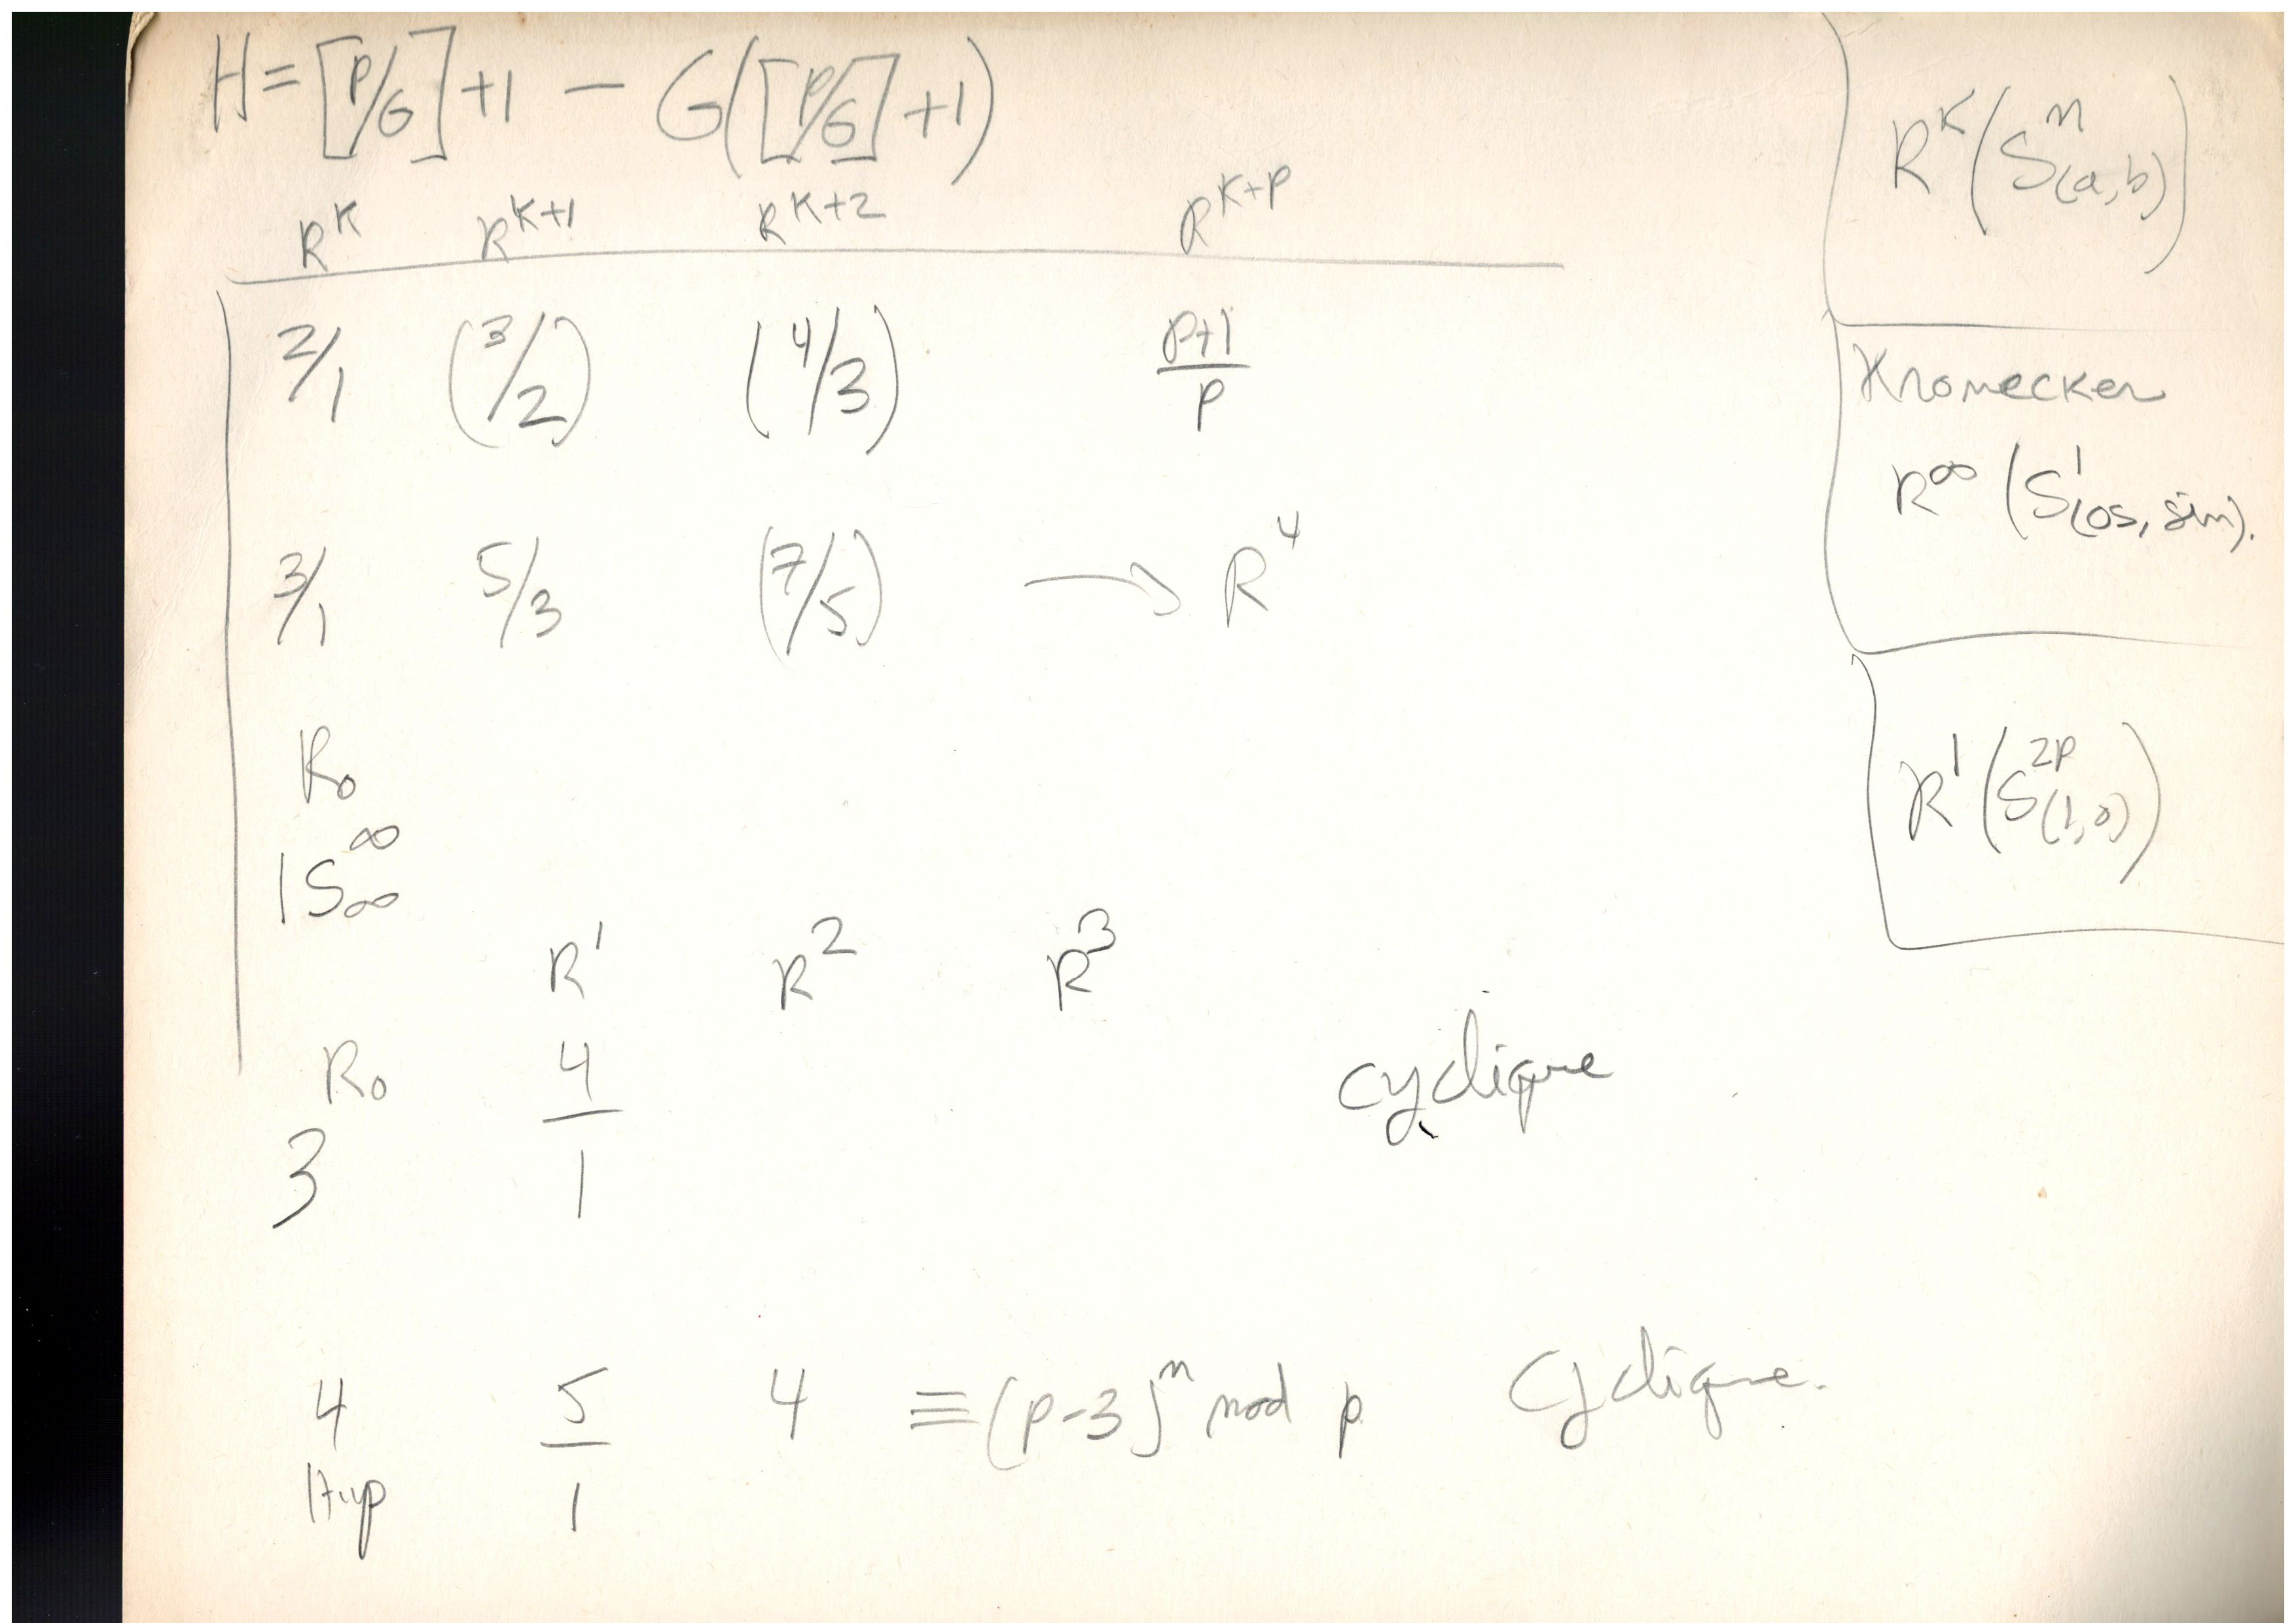 H = [P/G] + 1 — G([P/G] + 1)
R^K R^K+1 R^K+2 R^K+P
2/1 (3/2) (4/3) p+1/p
3/1 5/3 (7/5) → R^4
R₀
1S∞^∞
R^1 R^2 R^3
R₀ 4/1 cyclique
3
4 5/1 4 ≡ (p-3)^n mod p Cyclique.
Hyp
R^K(S^n(a,b))
Kronecker
R^∞(S^1(os, sin).
R^1(S^2P(1,0))